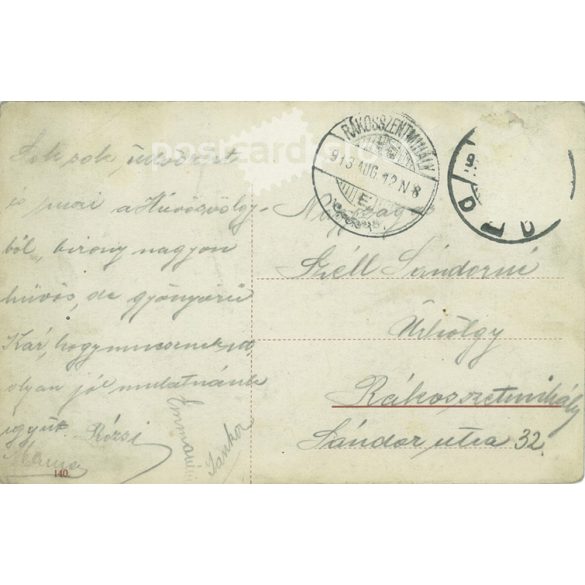 Sok sok üdvözlet
és puszi a Hűvösvölgy-
ből, bizony nagyon
hűvös, de gyönyörű
Kár, hogy nincsenek itt,
olyan jól mulatnánk
együtt. Rózsi
Mama
Emmanéni
Jankó
RÁKOSSZENTMIHÁLY
913 AUG 12 N 8
E
Nagyság
Széll Sándorné
Úrhölgy
Rákosszetmihály
Sándor utca 32.
140.
postcard